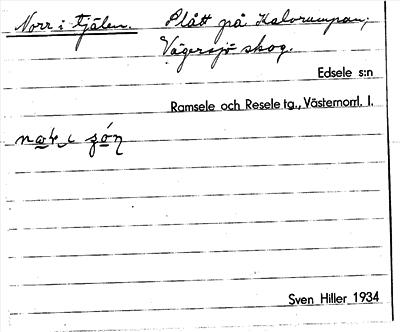 Norr i tjälen. Slått på Kalvrumpan,
Vägersjö skog.
Edsele s:n
Ramsele och Resele tg., Västernorrl. l.
Sven Hiller 1934